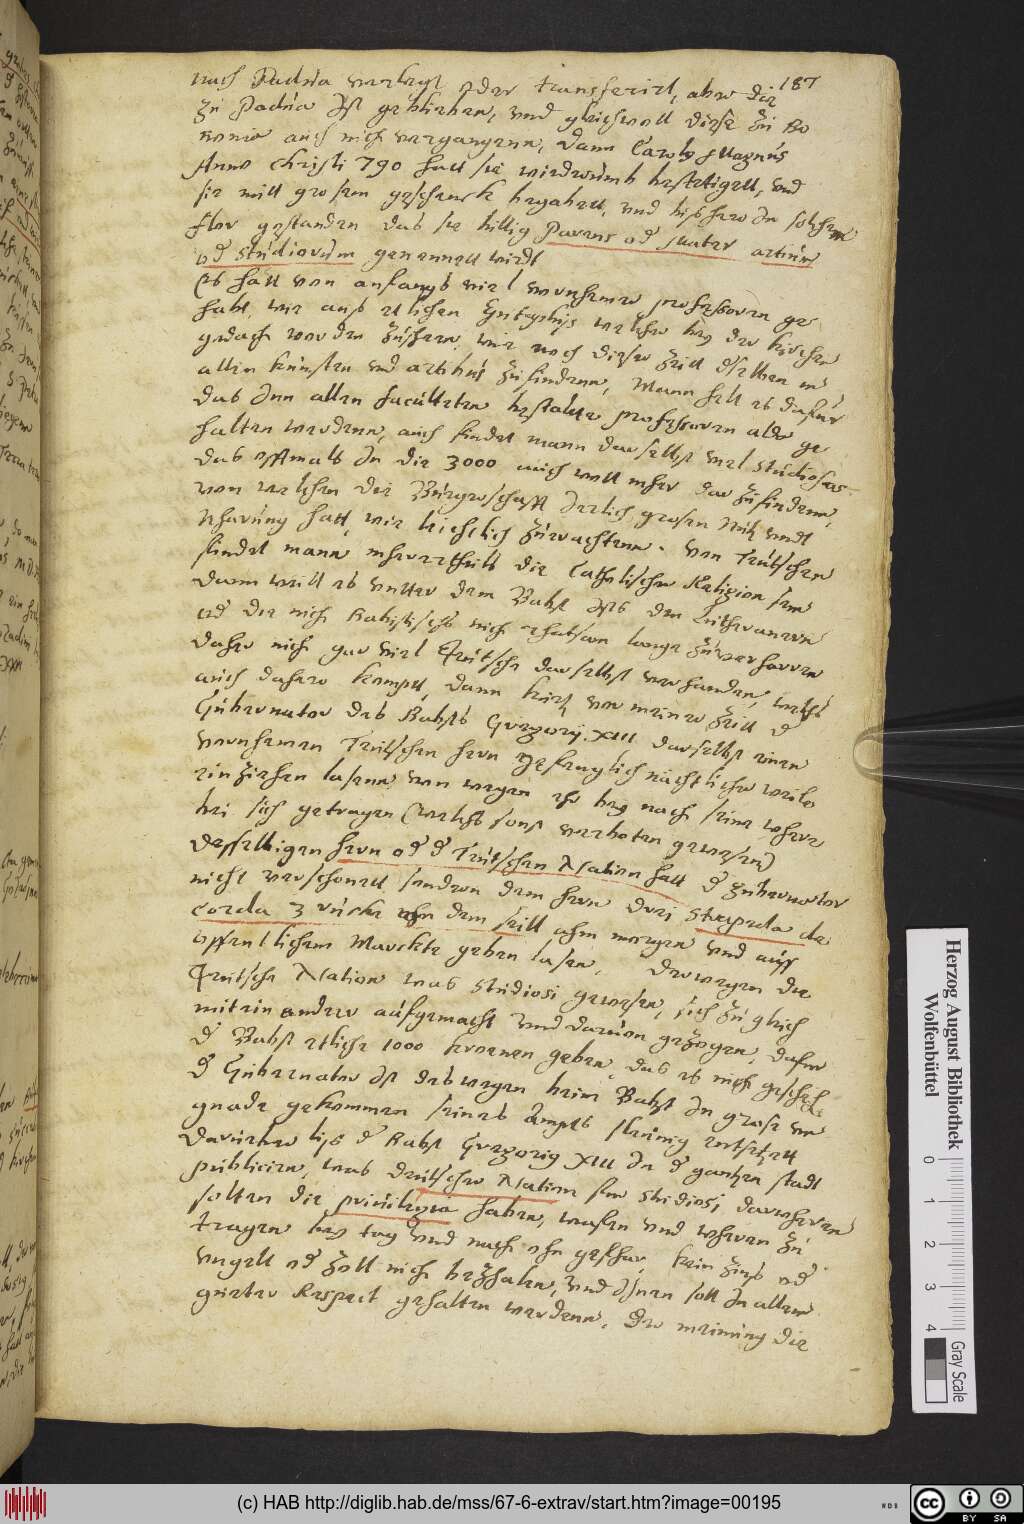 187
nach Padua verlegt oder transferirt, aber die
zu Padua ist geblieben, und gleichwoll diese zu Bo
nonia auch nich vergangenn, dann Carolus Magnus
Anno Christi 790 hatt sie wiederumb bestetigett, und
sie mitt grosem geschenck begabett, und bishero in solchem
flor gestanden das sie billig Parens od Mater artium
od studiorum genennett wirdt
Es hatt von anfangs viel vornhemer professoren ge
habt, wie aus etlichen Epitaphiis welcher bey der kirchen
gedach worden zusehen, wie noch dieser Zeitt deselben in
allen kunsten und artibus zufindenn, Mann helt es dafur
das inn allen faculteten bestalte professoren aldo ge
halten werdenn, auch findet mann daselbst viel studiosos
das offtmals in die 3000 auch woll mher dar zufindenn,
von welchen die Burgerschafft ierlich grosen Nutz undt
Nharung hatt, wie leichtlich zuerachtenn. Von Teutschen
findet mann mherertheils die Catholischer Religion sein
dann weill es untter dem Babst ists den Lutheranern
od die nich Babistisch nich rhatsam lange zuverharren
daher nich gar viel Teutsche daselbst verhanden, welchs
auch dahero kompt, dann kurtz vor meiner Zeitt d
Gubernator des Babsts Gregorij XIII daselbst einen
vornhemen Teutschen hern gefenglich nächtlicher weile
einziehen lasenn von wegen ehr bey nach seine where
bei sich getragen (welchs sonst verboten gewesen)
desselbigen hern od d Teutschen Nation hatt d gubernator
nicht verschonett sondern dem hern drei strapada de
corda 3 rücke ahn dem seill ahm morgen und auff
offentlichem Marckte geben lasen, derwegen die
Teutsche Nation was studiosi gewesen, sich zugleich
mitein ander aufgemacht und darvon gezogen, dafur
d Babst etliche 1000 kronen geben, das es nich geschehe
d Gubernator ist deswegen beim Babst in grose un
gnade gekommen seines Ampts schleunig entsetzett
daruber lies d Babst Gregorig XIII in d gantzen stadt
publicirn, was deutscher Nation sein studiosi, darwheren
solten die privilegia haben, wafen und wheren zu
tragen bey tag und nach ohn gefhar, kein Zinss od
ungelt od Zoll nich bezhalen, und ihnen soll in allem
gueter Respect gehalten werdenn, der meinung die
Herzog August Bibliothek
Wolfenbüttel
0 1 2 3 4
Gray Scale
(c) HAB http://diglib.hab.de/mss/67-6-extrav/start.htm?image=00195
WDB
CC BY SA